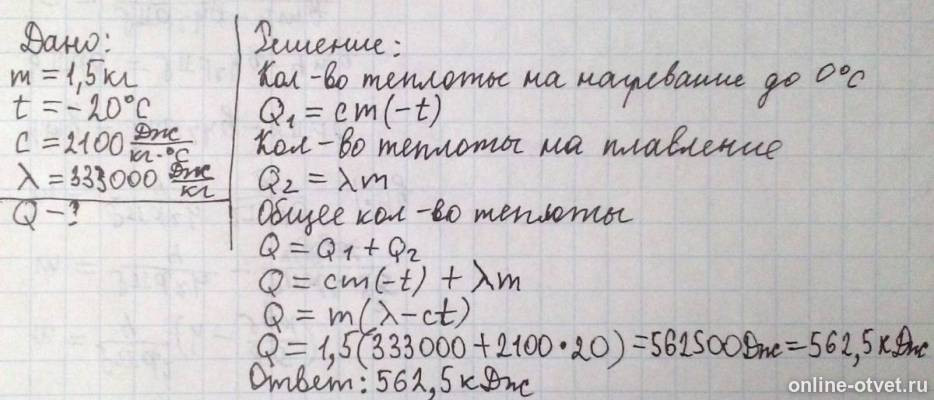 Дано:
m = 1,5 кг
t = -20°C
c = 2100 Дж/кг·°C
λ = 333000 Дж/кг
Q - ?
Решение:
Кол-во теплоты на нагревание до 0°C
Q₁ = cm(-t)
Кол-во теплоты на плавление
Q₂ = λm
Общее кол-во теплоты
Q = Q₁ + Q₂
Q = cm(-t) + λm
Q = m(λ-ct)
Q = 1,5(333000 + 2100·20) = 562500 Дж = 562,5 кДж
Ответ: 562,5 кДж
online-otvet.ru